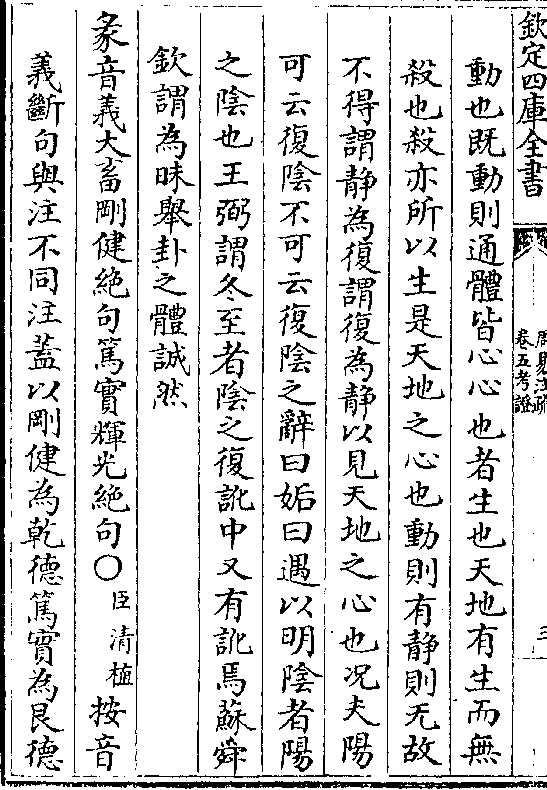 欽定四庫全書
周易注疏
卷五考證
三
動也既動則通體皆心心也者生也天地有生而無
殺也殺亦所以生是天地之心也動則有静則无故
不得謂静為復謂復為静以見天地之心也况夫陽
可云復陰不可云復陰之辭曰姤曰遇以明陰者陽
之陰也王弼謂冬至者陰之復訛中又有訛焉蘇舜
欽謂為昧舉卦之體誠然
彖音義大畜剛健絶句篤實輝光絶句〇臣清植按音
義斷句與注不同注蓋以剛健為乾德篤實為艮德